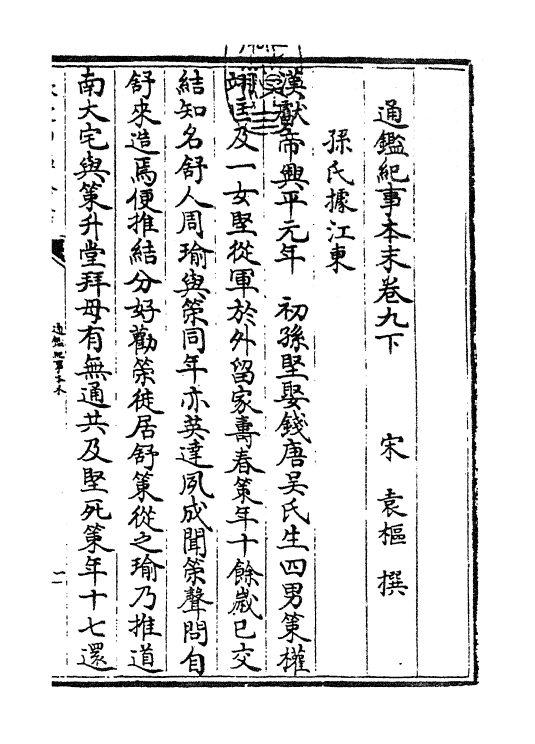 通鑑紀事本末卷九下
宋 袁樞 撰
孫氏據江東
漢獻帝興平元年 初孫堅娶錢唐吳氏生四男策權
翊匡及一女堅從軍於外留家壽春策年十餘歲已交
結知名舒人周瑜與策同年亦英達夙成聞策聲問自
舒來造焉便推結分好勸策徙居舒策從之瑜乃推道
南大宅與策升堂拜母有無通共及堅死策年十七還
通鑑紀事本末